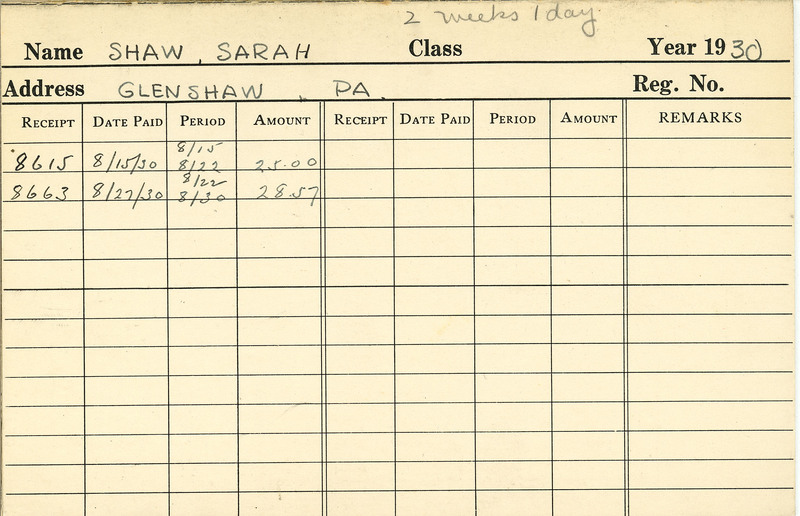 2 weeks 1 day.
Name SHAW, SARAH Class Year 1930
Address GLENSHAW, PA. Reg. No.
RECEIPT DATE PAID PERIOD AMOUNT RECEIPT DATE PAID PERIOD AMOUNT REMARKS
8/15
8615 8/15/30 8/22 25.00
8/22
8663 8/27/30 8/30 28.57